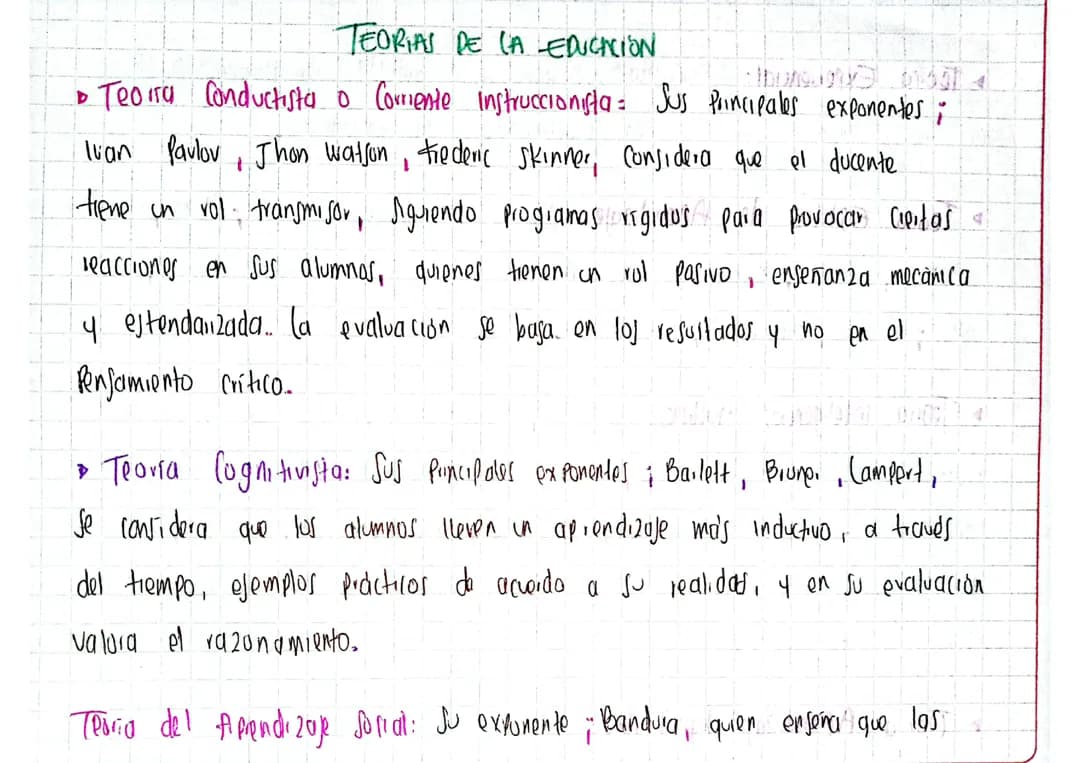 TEORIAS DE LA EDUCACION
Teoria Conductista o Corriente Instruccionista: Sus Principales exponentes;
Ivan Pavlov, Jhon Watson, frederic Skinner, Considera que el ducente
tiene un rol transmisor, siguiendo programas rigidos para provocar ciertas
reacciones en sus alumnos, quienes tienen un rol pasivo, enseñanza mecánica
y estendarizada.. La evaluación se basa en los resultados y no en el
Pensamiento crítico..
Teoría Cognitivista: Sus Principales exponentes; Barlett, Bruner, Lampert,
Se considera que los alumnos lleven un aprendizaje más inductivo, a través
del tiempo, ejemplos prácticos de acuerdo a su realidad, y en su evaluación
valora el razonamiento.
Teoria del Aprendizaje Social: Su exponente; Bandura, quien enseña que las